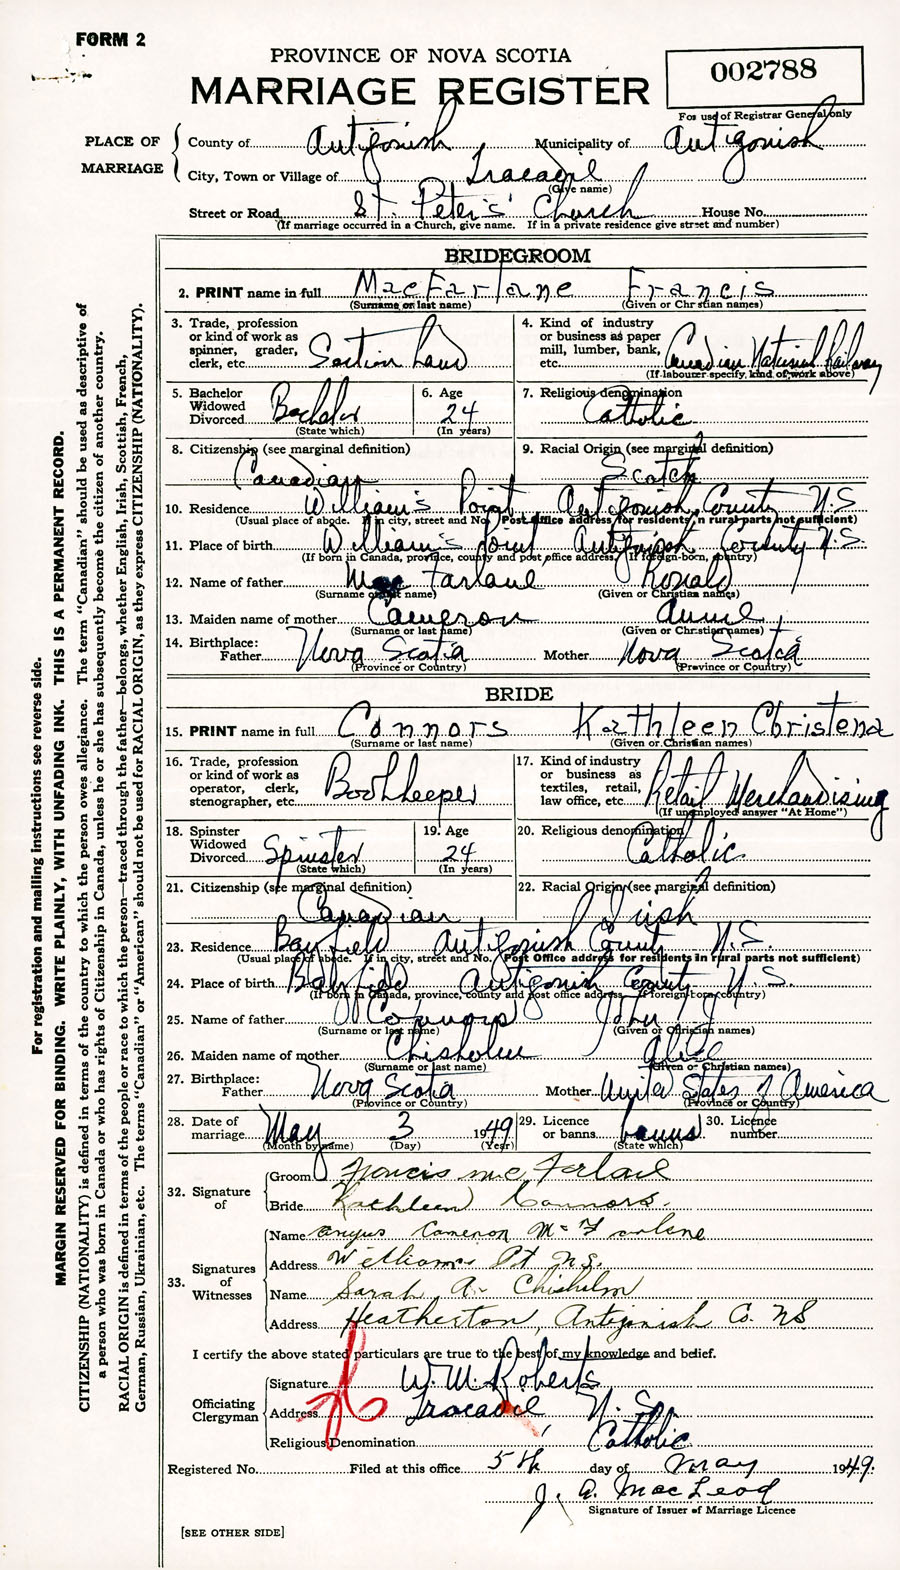 FORM 2
PROVINCE OF NOVA SCOTIA
MARRIAGE REGISTER
002788
For use of Registrar General only
PLACE OF MARRIAGE
County of Antigonish Municipality of Antigonish
City, Town or Village of Tracadie
(Give name)
Street or Road St. Peter's Church House No.
(If marriage occurred in a Church, give name. If in a private residence give street and number)
BRIDEGROOM
2. PRINT name in full MacFarlane Francis
(Surname or last name) (Given or Christian names)
3. Trade, profession or kind of work as spinner, grader, clerk, etc. Section hand
4. Kind of industry or business as paper mill, lumber, bank, etc. Canadian National Railway
(If labourer specify kind of work above)
5. Bachelor Widowed Divorced Bachelor
(State which)
6. Age 24
(In years)
7. Religious denomination Catholic
8. Citizenship (see marginal definition) Canadian
9. Racial Origin (see marginal definition) Scotch
10. Residence William's Point Antigonish County N.S
(Usual place of abode. If in city, street and No. Post Office address for residents in rural parts not sufficient)
11. Place of birth William's Point Antigonish County N.S.
(If born in Canada, province, county and post office address. If foreign-born, country)
12. Name of father MacFarlane Ronald
(Surname or last name) (Given or Christian names)
13. Maiden name of mother Cameron Annie
(Surname or last name) (Given or Christian names)
14. Birthplace: Father Nova Scotia Mother Nova Scotia
(Province or Country) (Province or Country)
BRIDE
15. PRINT name in full Connors Kathleen Christena
(Surname or last name) (Given or Christian names)
16. Trade, profession or kind of work as operator, clerk, stenographer, etc. Bookkeeper
17. Kind of industry or business as textiles, retail, law office, etc. Retail Merchandising
(If unemployed answer "At Home")
18. Spinster Widowed Divorced Spinster
(State which)
19. Age 24
(In years)
20. Religious denomination Catholic
21. Citizenship (see marginal definition) Canadian
22. Racial Origin (see marginal definition) Irish
23. Residence Bayfield Antigonish County N.S.
(Usual place of abode. If in city, street and No. Post Office address for residents in rural parts not sufficient)
24. Place of birth Bayfield Antigonish County N.S.
(If born in Canada, province, county and post office address. If foreign-born, country)
25. Name of father Connors John J
(Surname or last name) (Given or Christian names)
26. Maiden name of mother Chisholm Alice
(Surname or last name) (Given or Christian names)
27. Birthplace: Father Nova Scotia Mother United States of America
(Province or Country) (Province or Country)
28. Date of marriage May 3 1949
(Month by name) (Day) (Year)
29. Licence or banns banns
(State which)
30. Licence number
32. Signature of
Groom Francis McFarlane
Bride Kathleen Connors.
33. Signatures of Witnesses
Name Angus Cameron McFarlane
Address Williams Pt N.S.
Name Sarah A. Chisholm
Address Heatherton, Antigonish Co. NS
I certify the above stated particulars are true to the best of my knowledge and belief.
Officiating Clergyman
Signature W. M. Roberts
Address Tracadie, N.S.
Religious Denomination Catholic
Registered No. Filed at this office 5th day of May 1949.
J. A. MacLeod
Signature of Issuer of Marriage Licence
[SEE OTHER SIDE]
For registration and mailing instructions see reverse side.
MARGIN RESERVED FOR BINDING. WRITE PLAINLY, WITH UNFADING INK. THIS IS A PERMANENT RECORD.
CITIZENSHIP (NATIONALITY) is defined in terms of the country to which the person owes allegiance. The term "Canadian" should be used as descriptive of
a person who was born in Canada or who has rights of Citizenship in Canada, unless he or she has subsequently become the citizen of another country.
RACIAL ORIGIN is defined in terms of the people or race to which the person—traced through the father—belongs, whether English, Irish, Scottish, French,
German, Russian, Ukrainian, etc. The terms "Canadian" or "American" should not be used for RACIAL ORIGIN, as they express CITIZENSHIP (NATIONALITY).